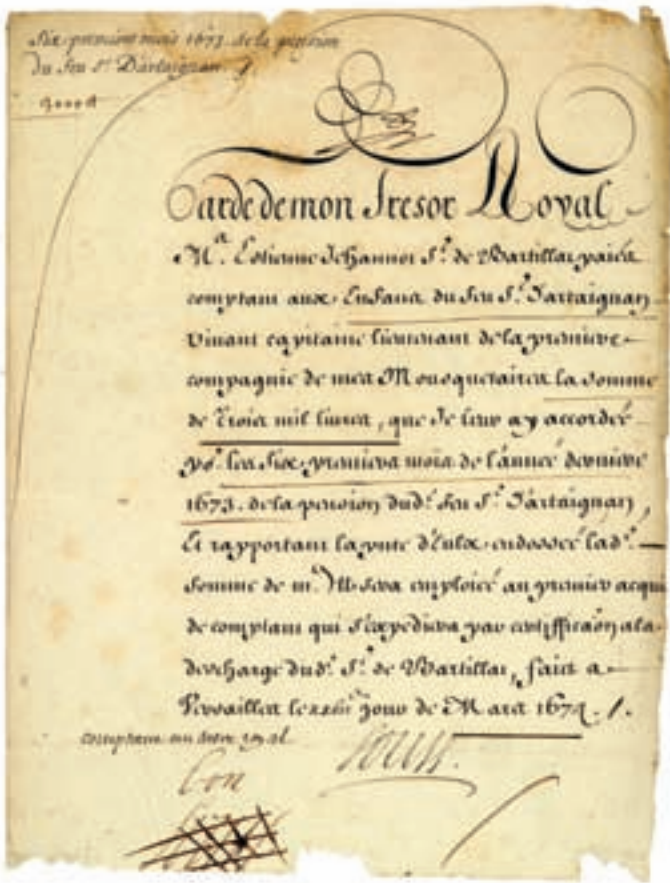 Six premiers mois 1673. de la pension
du feu Sr. Dartaignan
3000#
Garde de mon Tresor Royal
Mr. Estienne Jehannot Sr. de Bartillat, paiéz
comptant aux Enfans du feu Sr. Dartaignan
vivant capitaine lieutenant de la premiere
compagnie de mes Mousquetaires la somme
de Trois mil livres, que Je leur ay accordée
po. les Six premiers mois de l'année derniere
1673. de la pension dud. feu Sr. Dartaignan,
Et rapportant la pnte d'Eulx endossée lad.
somme de m. Ml sera emploiée au premier acquit
de comptant qui S'expediera par certiffication a la
descharge dud. Sr. de Bartillat, faict a
Versailles le jour de Mars 1674. /.
comptant au tresor royal
Louis.
Bon